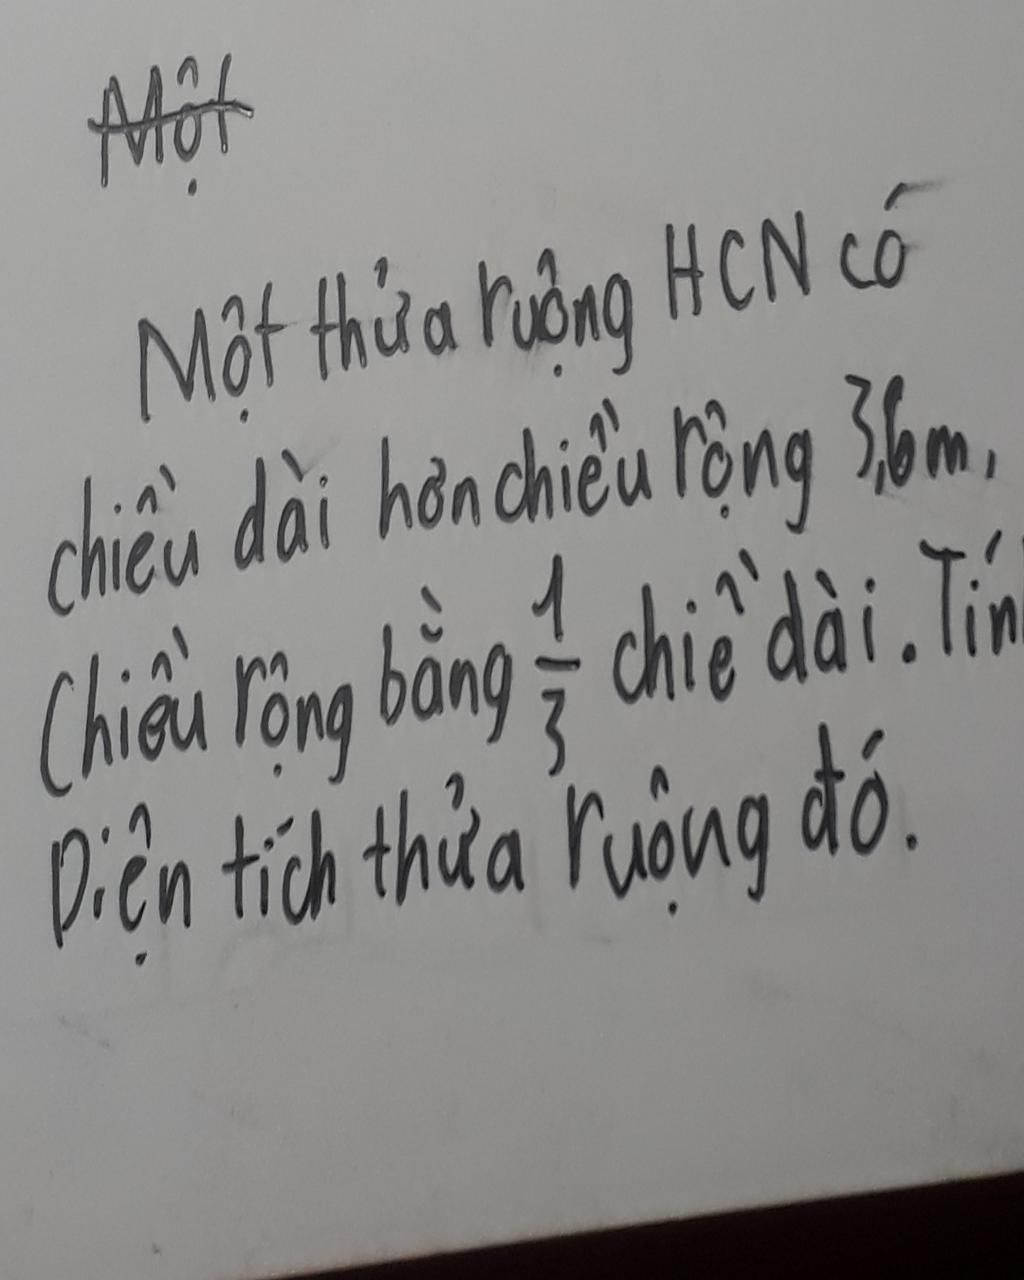 Một
Một thửa ruộng HCN có
chiều dài hơn chiều rộng 3,6m,
Chiều rộng bằng 1/3 chiề dài. Tín
Diện tích thửa ruộng đó.